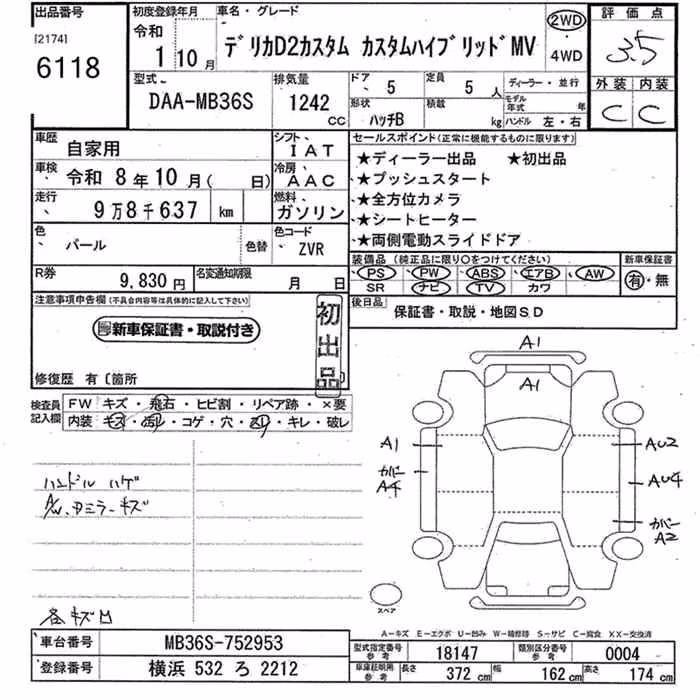 出品番号
[2174]
6118
初度登録年月
令和
1 10 月
車名・グレード
デリカD2カスタム カスタムハイブリッドMV
2WD
・
4WD
評価点
3.5
外装 内装
C C
型式
DAA-MB36S
排気量
1242 CC
ドア 5
定員 5 人
形状 ハッチB
積載 kg
ディーラー・並行
モデル年式 年
ハンドル 左・右
車歴 自家用
シフト IAT
車検 令和 8 年 10 月( 日)
冷房 AAC
走行 9万8千637 km
燃料 ガソリン
色 パール 色替
色コード ZVR
R券 9,830 円
名変通知期限 月 日
セールスポイント(正常に機能するものに限ります)
★ディーラー出品 ★初出品
★プッシュスタート
★全方位カメラ
★シートヒーター
★両側電動スライドドア
装備品 (純正品に限り○をつけてください)
PS PW ABS エアB AW
SR ナビ TV カワ
新車保証書
有・無
後日品 保証書・取説・地図SD
注意事項申告欄(不具合内容等は具体的に記入して下さい)
新車保証書・取説付き
初出品
修復歴 有〔箇所
検査員記入欄
FW キズ・飛石・ヒビ割・リペア跡・×要
内装 キズ・汚レ・コゲ・穴・スレ・キレ・破レ
ハンドル ハゲ
A/W、ドミラーキズ
各キズ凹
A1
A1
A1
カバー
A4
AU2
AU4
カバー
A2
スペア
A-キズ E-エクボ U-凹み W-補修跡 S-サビ C-腐食 XX-交換済
車台番号 MB36S-752953
登録番号 横浜 532 ろ 2212
型式指定番号 参考 18147
類別区分番号 参考 0004
車庫証明用 参考 長さ 372 cm 幅 162 cm 高さ 174 cm